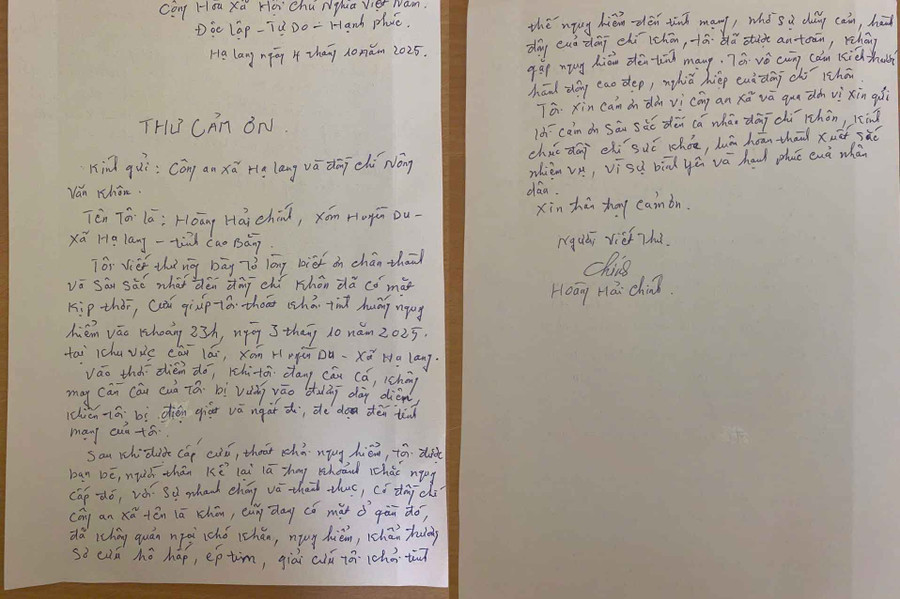 Cộng Hòa Xã Hội Chủ Nghĩa Việt Nam.
Độc lập - Tự Do - Hạnh phúc.
Hạ lang ngày 4 tháng 10 năm 2025.
THƯ CẢM ƠN.
Kính gửi: Công an xã Hạ lang và đồng chí Nông
Văn Khôn.
Tên Tôi là: Hoàng Hải Chính, Xóm Huyền Du -
Xã Hạ lang - tỉnh Cao Bằng.
Tôi viết thư này bày tỏ lòng biết ơn chân thành
và sâu sắc nhất đến đồng chí Khôn đã có mặt
kịp thời, cứu giúp tôi thoát khỏi tình huống nguy
hiểm vào khoảng 23h, ngày 3 tháng 10 năm 2025.
tại khu vực cầu lái, xóm Huyền Du - Xã Hạ lang.
Vào thời điểm đó, khi tôi đang câu cá, không
may cần câu của tôi bị vướng vào đường dây điện,
khiến tôi bị điện giật và ngất đi, đe dọa đến tính
mạng của tôi.
Sau khi được cấp cứu, thoát khỏi nguy hiểm, tôi được
bạn bè, người thân kể lại là trong khoảnh khắc nguy
cấp đó, với sự nhanh chóng và thành thục, có đồng chí
công an xã tên là Khôn, cũng đang có mặt ở gần đó,
đã không quản ngại khó khăn, nguy hiểm, khẩn trương
sơ cứu hô hấp, ép tim, giải cứu tôi khỏi tình
thế nguy hiểm đến tính mạng, nhờ sự dũng cảm, hành
động của đồng chí Khôn, tôi đã được an toàn, không
gặp nguy hiểm đến tính mạng. Tôi vô cùng cảm kích trước
hành động cao đẹp, nghĩa hiệp của đồng chí Khôn.
Tôi xin cảm ơn đơn vị công an xã và qua đơn vị xin gửi
lời cảm ơn sâu sắc đến cá nhân đồng chí Khôn, kính
chúc đồng chí sức khỏe, luôn hoàn thành xuất sắc
nhiệm vụ, vì sự bình yên và hạnh phúc của nhân
dân.
Xin trân trọng cảm ơn.
Người viết thư.
Chính
Hoàng Hải Chính.